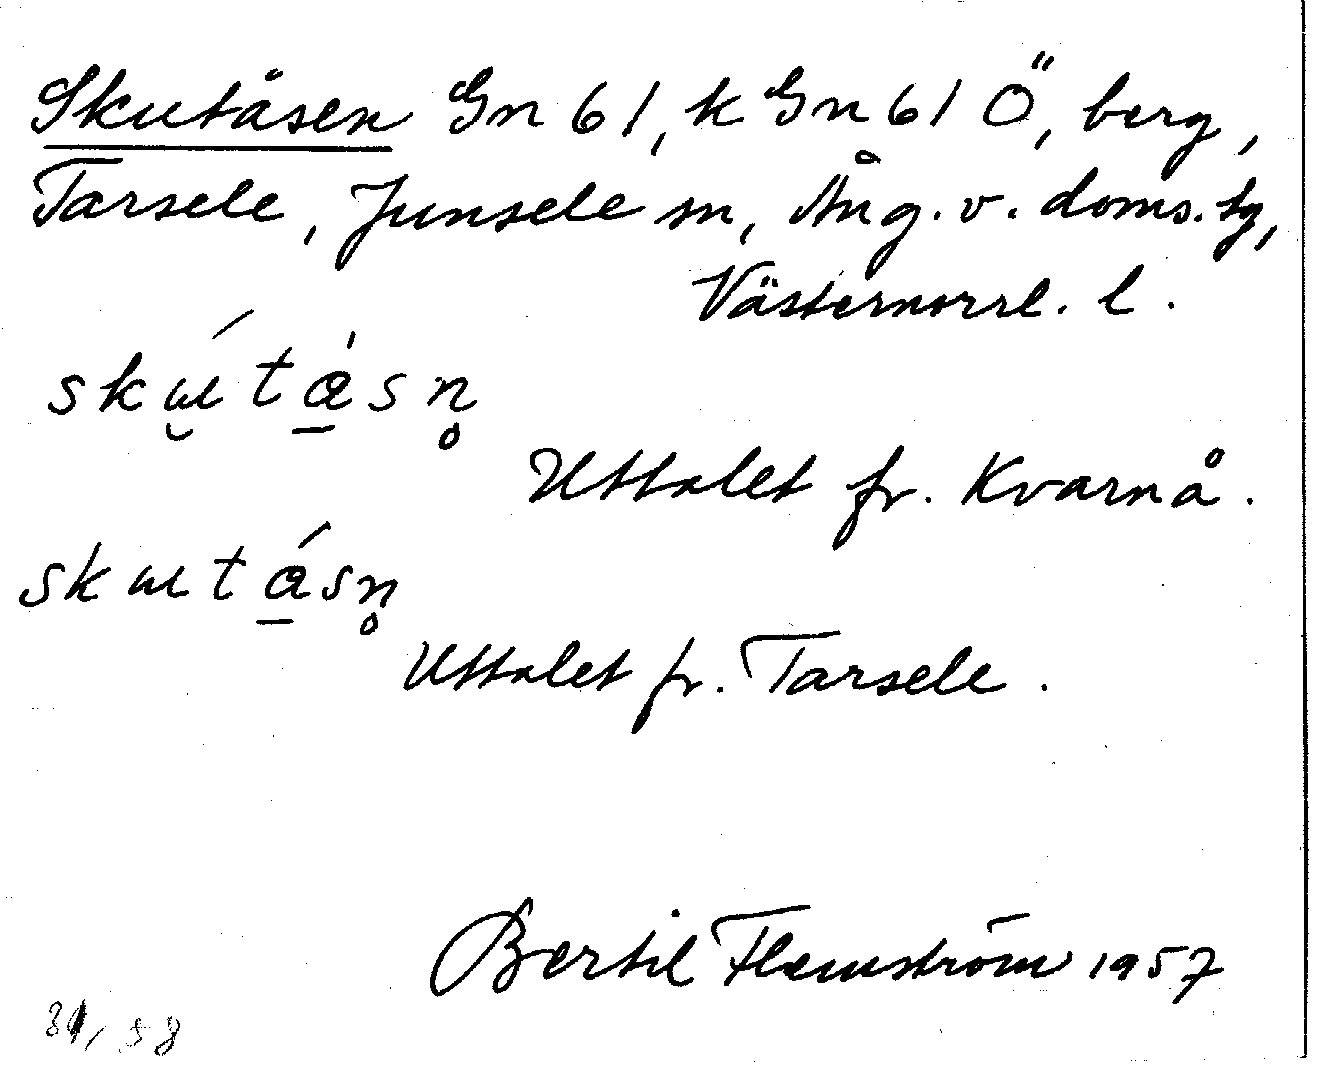 Skutåsen Gn 61, k Gn 61 Ö, berg,
Tarsele, Junsele sn, Ång. v. doms. sg,
Västernorrl. l.
skɯ́tɑ̀sn̥
Uttalet fr. Kvarnå.
skɯtɑ́sn̥
Uttalet fr. Tarsele.
Bertil Flemström 1957